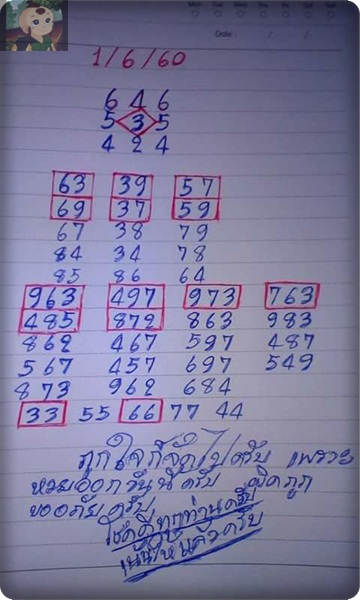 Date :
1/6/60
6 4 6
5 3 5
4 2 4
63 39 57
69 37 59
67 38 79
84 34 78
85 86 64
963 497 973 763
485 872 863 983
862 467 597 487
567 457 697 549
873 962 684
33 55 66 77 44
ถูกใจก็จัดไปครับ เพราะ
หวยออกวันนี้ครับ ผิดถูก
ขออภัยครับ
โชคดีทุกท่านครับ
เน้นให้แล้วครับ